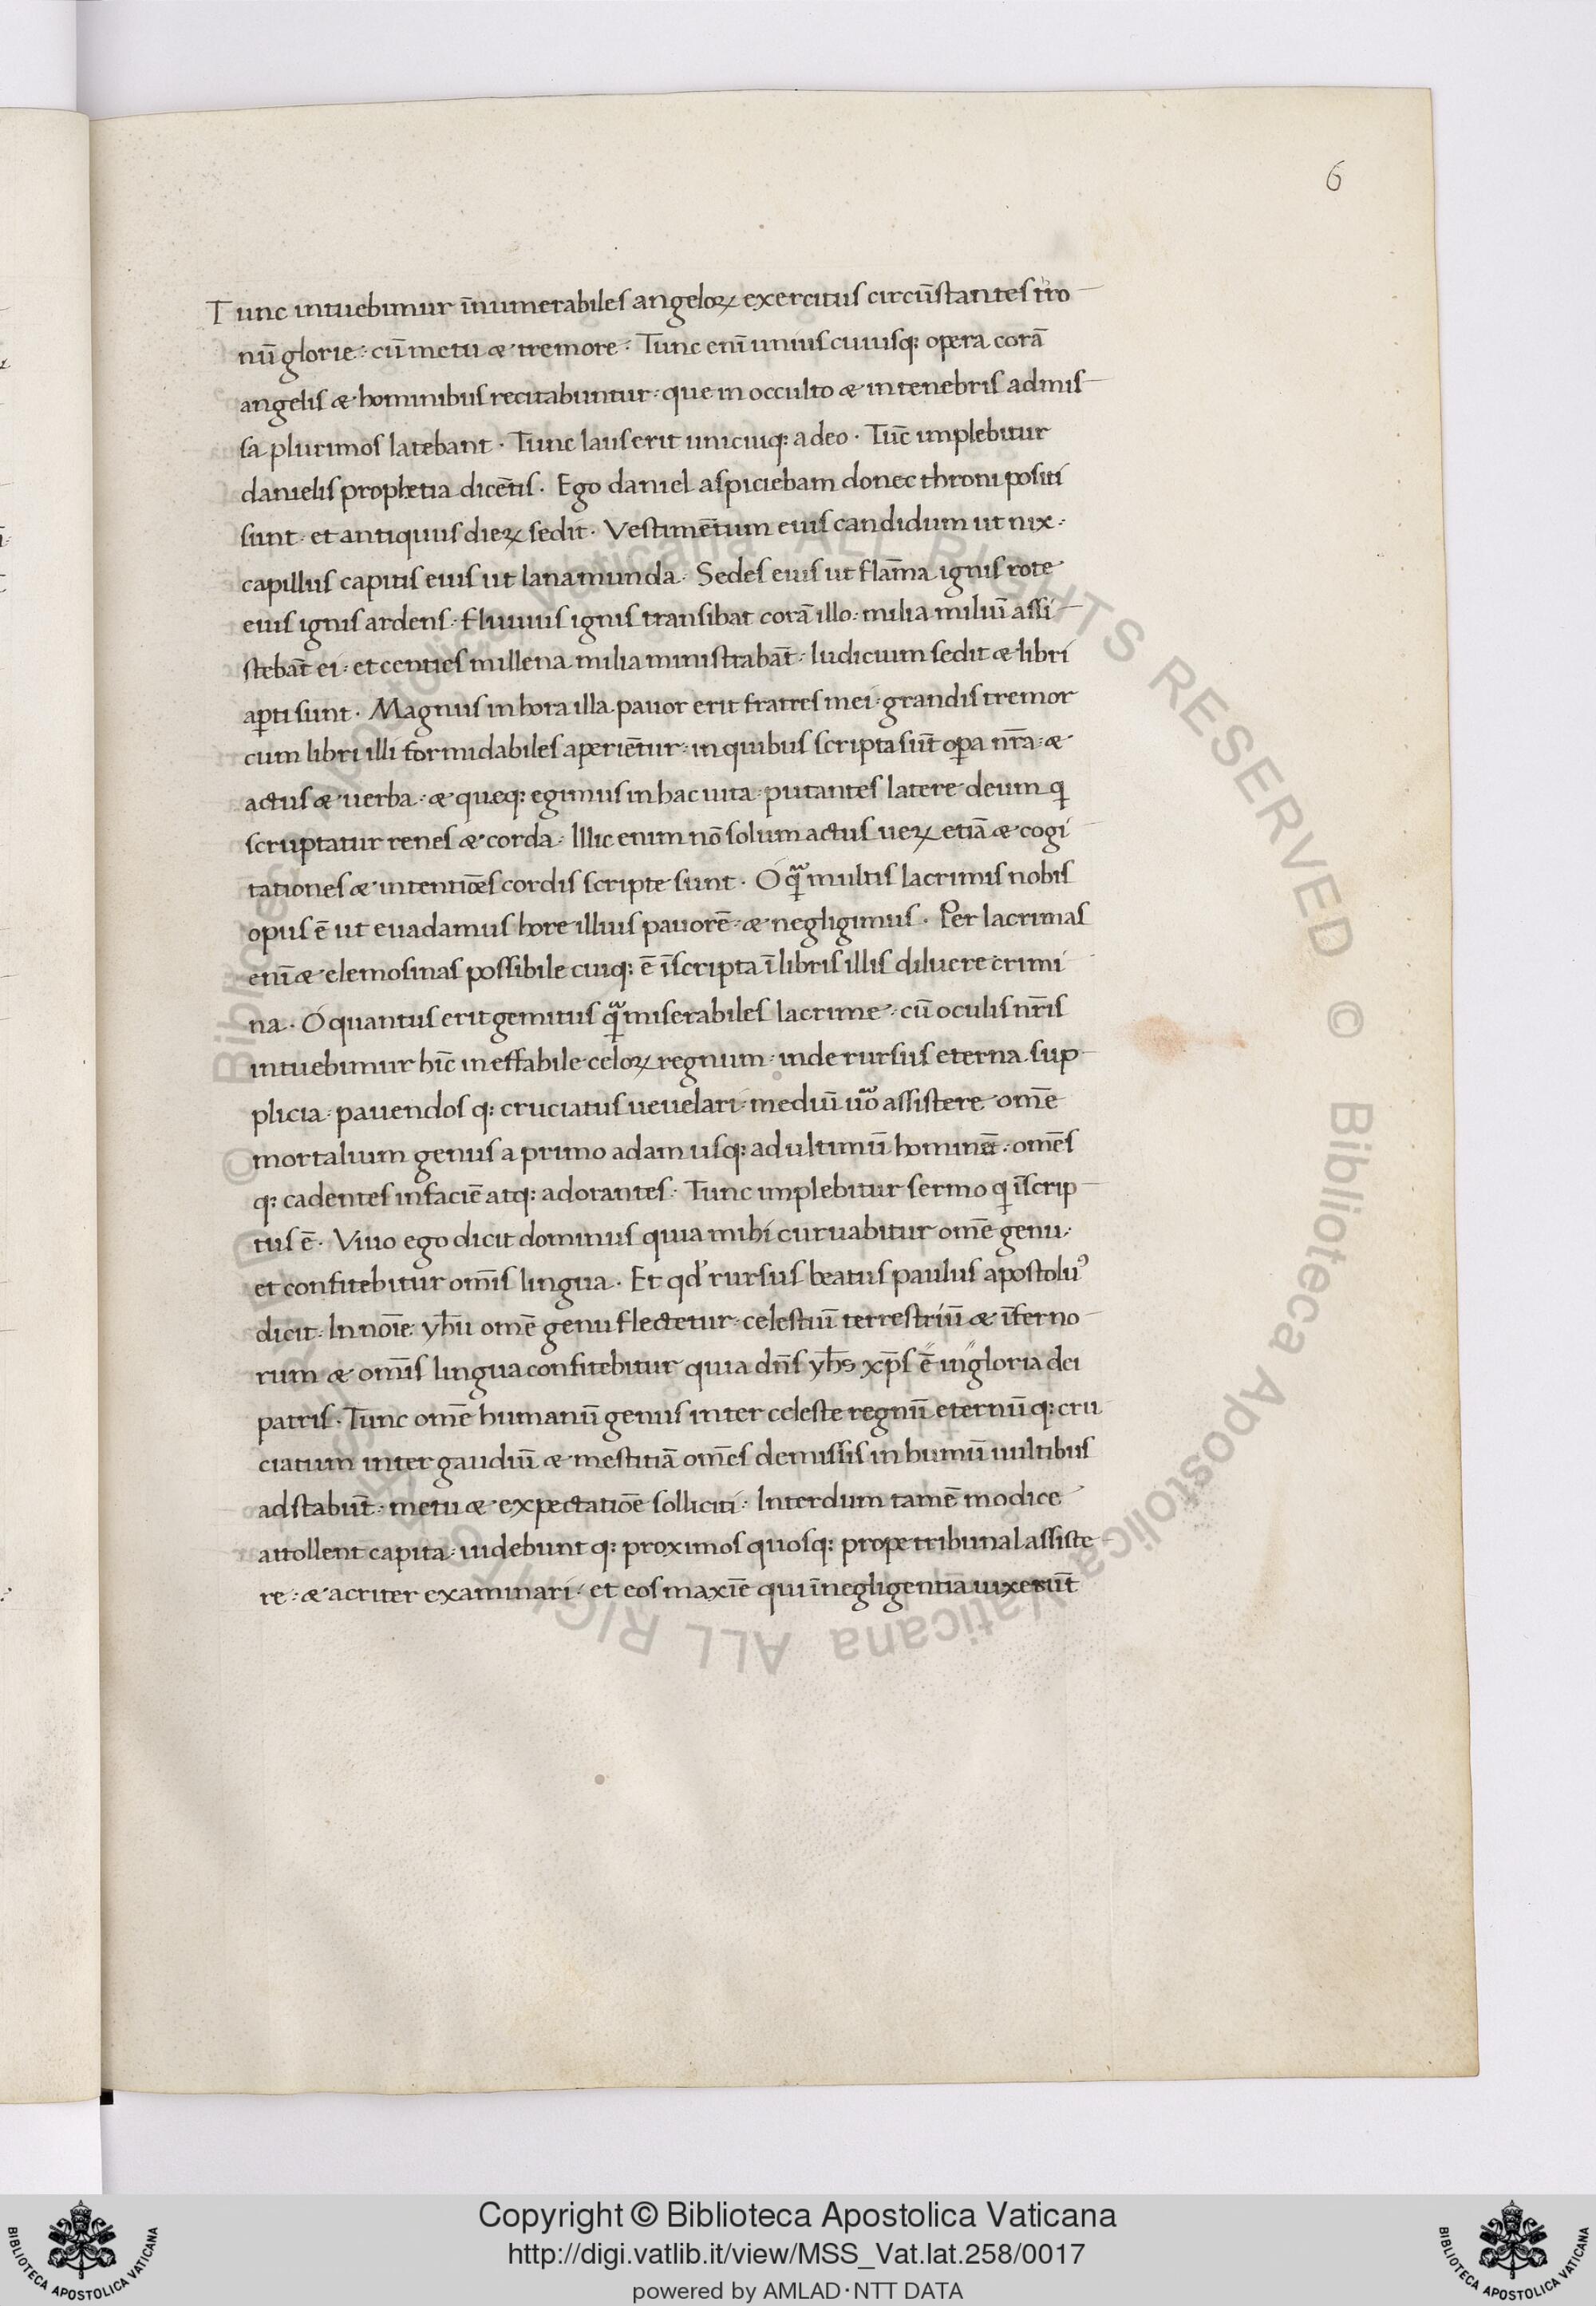 6
Tunc intuebimur īnumerabiles angeloꝝ exercitus circūstantes tro
nū glorie: cū metu æ tremore: Tunc enī uniuscuiusq; opera corā
angelis æ hominibus recitabuntur: que in occulto æ in tenebris admis
sa plurimos latebant · Tunc laus erit unicuiq; a deo · Tūc implebitur
danielis prophetia dicētis · Ego daniel aspiciebam donec throni positi
sunt: et antiquus dieꝝ sedit · Vestimētum eius candidum ut nix:
capillus capitis eius ut lana munda: Sedes eius ut flāma ignis rote
eius ignis ardens: fluuius ignis transibat corā illo: milia miliū assi
stebāt ei: et centies millena milia ministrabāt: Iudicium sedit æ libri
aꝑti sunt · Magnus in hora illa pauor erit fratres mei: grandis tremor
cum libri illi formidabiles aperiētur: in quibus scripta sūt oꝑa nr̄a: æ
actus æ uerba: æ queq; egimus in hac uita: putantes latere deum qͥ
scruptatur renes æ corda: Illic enim nō solum actus ueꝝ etiā æ cogi
tationes æ intentiōes cordis scripte sunt · O qᷓ multis lacrimis nobis
opus ē ut euadamus hore illius pauorē: æ negligimus · Per lacrimas
enī æ elemosinas possibile cuiq; ē īscripta ī libris illis diluere crimi
na · O quantus erit gemitus qᷓ miserabiles lacrime: cū oculis nr̄is
intuebimur hīc ineffabile celoꝝ regnum: inde rursus eterna sup
plicia: pauendos q; cruciatus ueuelari: mediū uͦo assistere omē
mortalium genus a primo adam usq; ad ultimū hominē: omēs
q; cadentes in faciē atq; adorantes: Tunc implebitur sermo qͥ īscrip
tus ē · Viuo ego dicit dominus quia mihi curuabitur omē genu:
et confitebitur omīs lingua · Et qd̕ rursus beatus paulus apostoluꝰ
dicit: In noīe yħu omē genu flectetur: celestiū terrestriū æ īferno
rum æ omīs lingua confitebitur quia dn̄s yħs xp̄s ē in gloria dei
patris · Tunc omē humanū genus inter celeste regnū eternū q; cru
ciatum inter gaudiū æ mestitiā omēs demissis in humū uultibus
adstabūt: metu æ expectatiōe solliciti: Interdum tamē modice
attollent capita: uidebunt q; proximos quosq; prope tribunal assiste
re: æ acriter examinari: et eos maxīe qui ī negligentia uixerūt
Copyright © Biblioteca Apostolica Vaticana
http://digi.vatlib.it/view/MSS_Vat.lat.258/0017
powered by AMLAD·NTT DATA